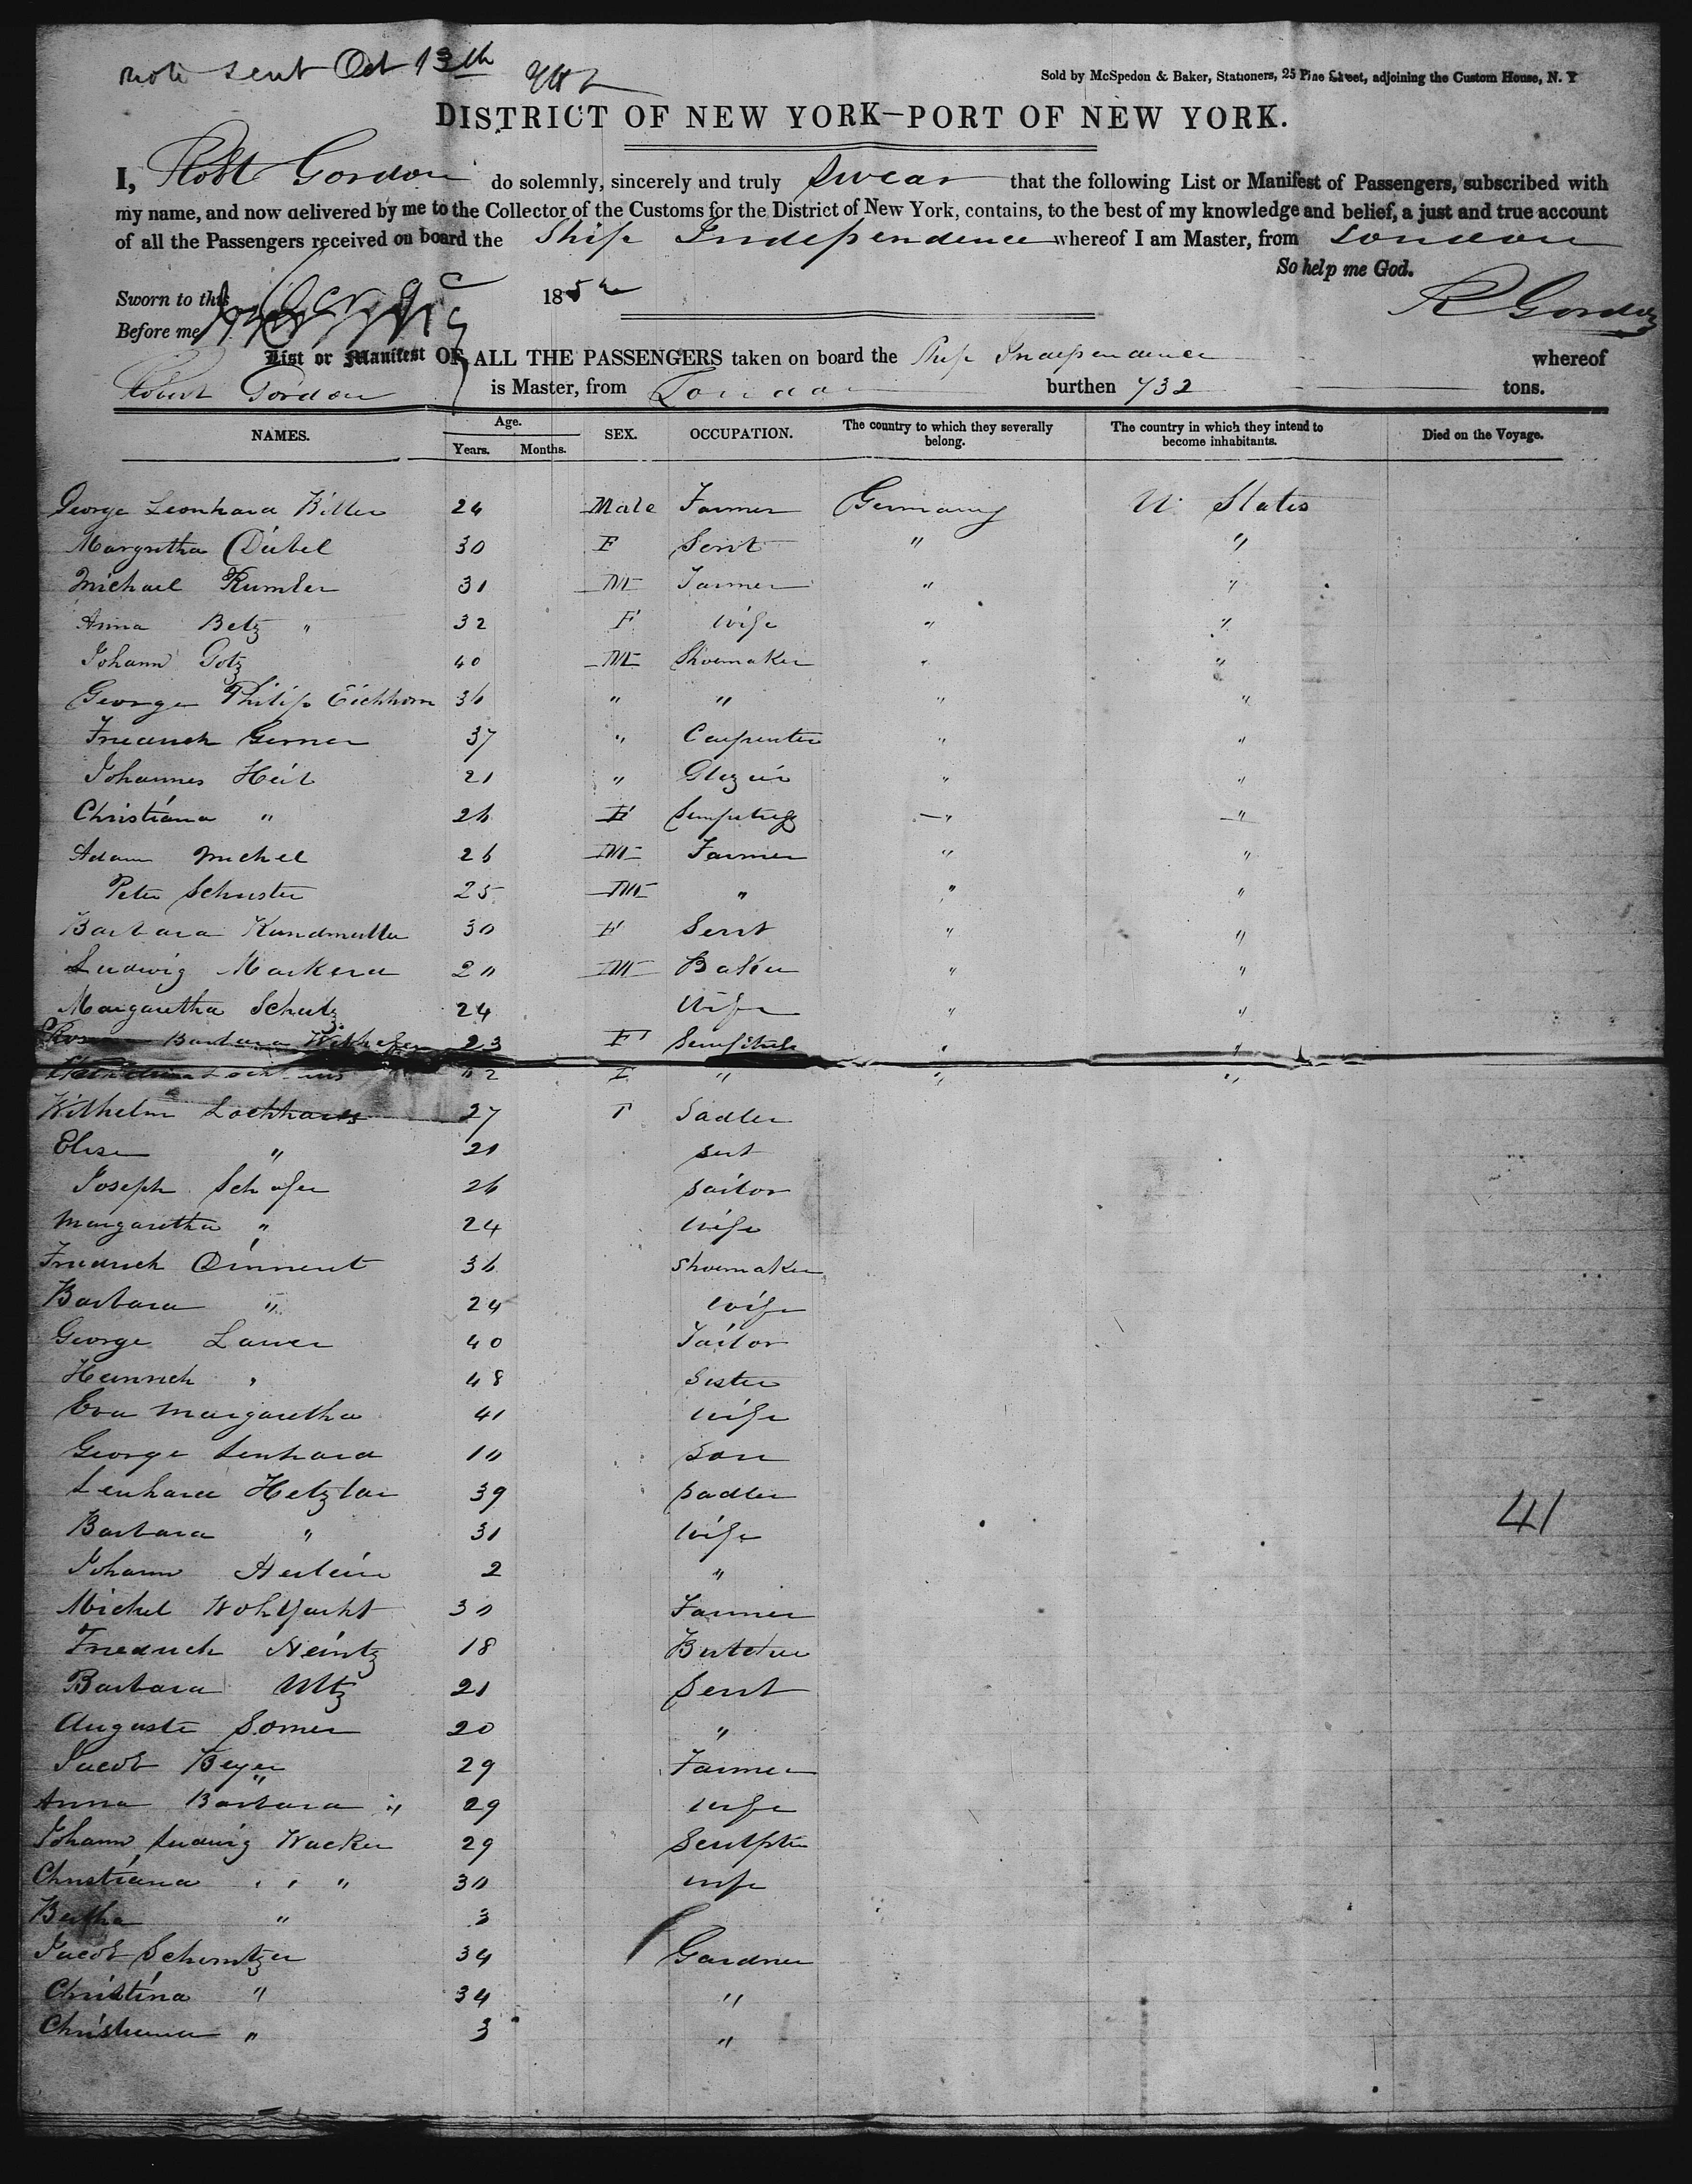 note sent Oct 13th
Sold by McSpedon & Baker, Stationers, 25 Pine Street, adjoining the Custom House, N. Y
DISTRICT OF NEW YORK—PORT OF NEW YORK.
I, Robt Gordon do solemnly, sincerely and truly swear that the following List or Manifest of Passengers, subscribed with
my name, and now delivered by me to the Collector of the Customs for the District of New York, contains, to the best of my knowledge and belief, a just and true account
of all the Passengers received on board the Ship Independence whereof I am Master, from London
So help me God.
Sworn to this 185
R Gordon
Before me
List or Manifest OF ALL THE PASSENGERS taken on board the Ship Independence whereof
Robert Gordon is Master, from London burthen 732 tons.
NAMES. Age. Years. Months. SEX. OCCUPATION. The country to which they severally belong. The country in which they intend to become inhabitants. Died on the Voyage.
George Leonhard 24 Male Farmer Germany U. States
Margretha Diebel 30 F Servt " "
Michael Kumler 31 M Farmer " "
Anna Betz " 32 F wife " "
Johann Gotz 40 M Shoemaker " "
George Philip Eichhorn 36 " " " "
Friedrich Gerner 37 " Carpenter " "
Johannes Heil 21 " Glazier " "
Christiana " 26 F " "
Adam Michel 26 M Farmer " "
Peter Schuster 25 M " " "
Barbara Kundmuller 30 F Servt " "
Ludwig Markera 20 M Baker " "
Margaretha Schutz 24 Wife " "
Barbara 23 F " "
" " "
Wilhelm Lochhaus 27 Sadler
Elise " 21 Sert
Joseph Schafer 26 Sailor
Margaretha " 24 wife
Friedrich Dinnent 36 Shoemaker
Barbara " 24 wife
George Lauer 40 Tailor
Heinrich " 48 Sister
Eva Margaretha 41 wife
George Lenhard 10 Son
Lenhard Hetzlar 39 Sadler
41
Barbara " 31 wife
Johann 2 "
Michel Wohlfarht 30 Farmer
Friedrich Heintz 18 Butcher
Barbara Utz 21 Servt
Auguste Somer 20 "
Jacob Beyer 29 Farmer
Anna Barbara " 29 wife
Johann Ludwig Wacker 29 Sculpter
Christiana " " 30 wife
Bertha " 3
Jacob Schmitzer 34 Gardner
Christina " 34 "
Christiana " 3 "